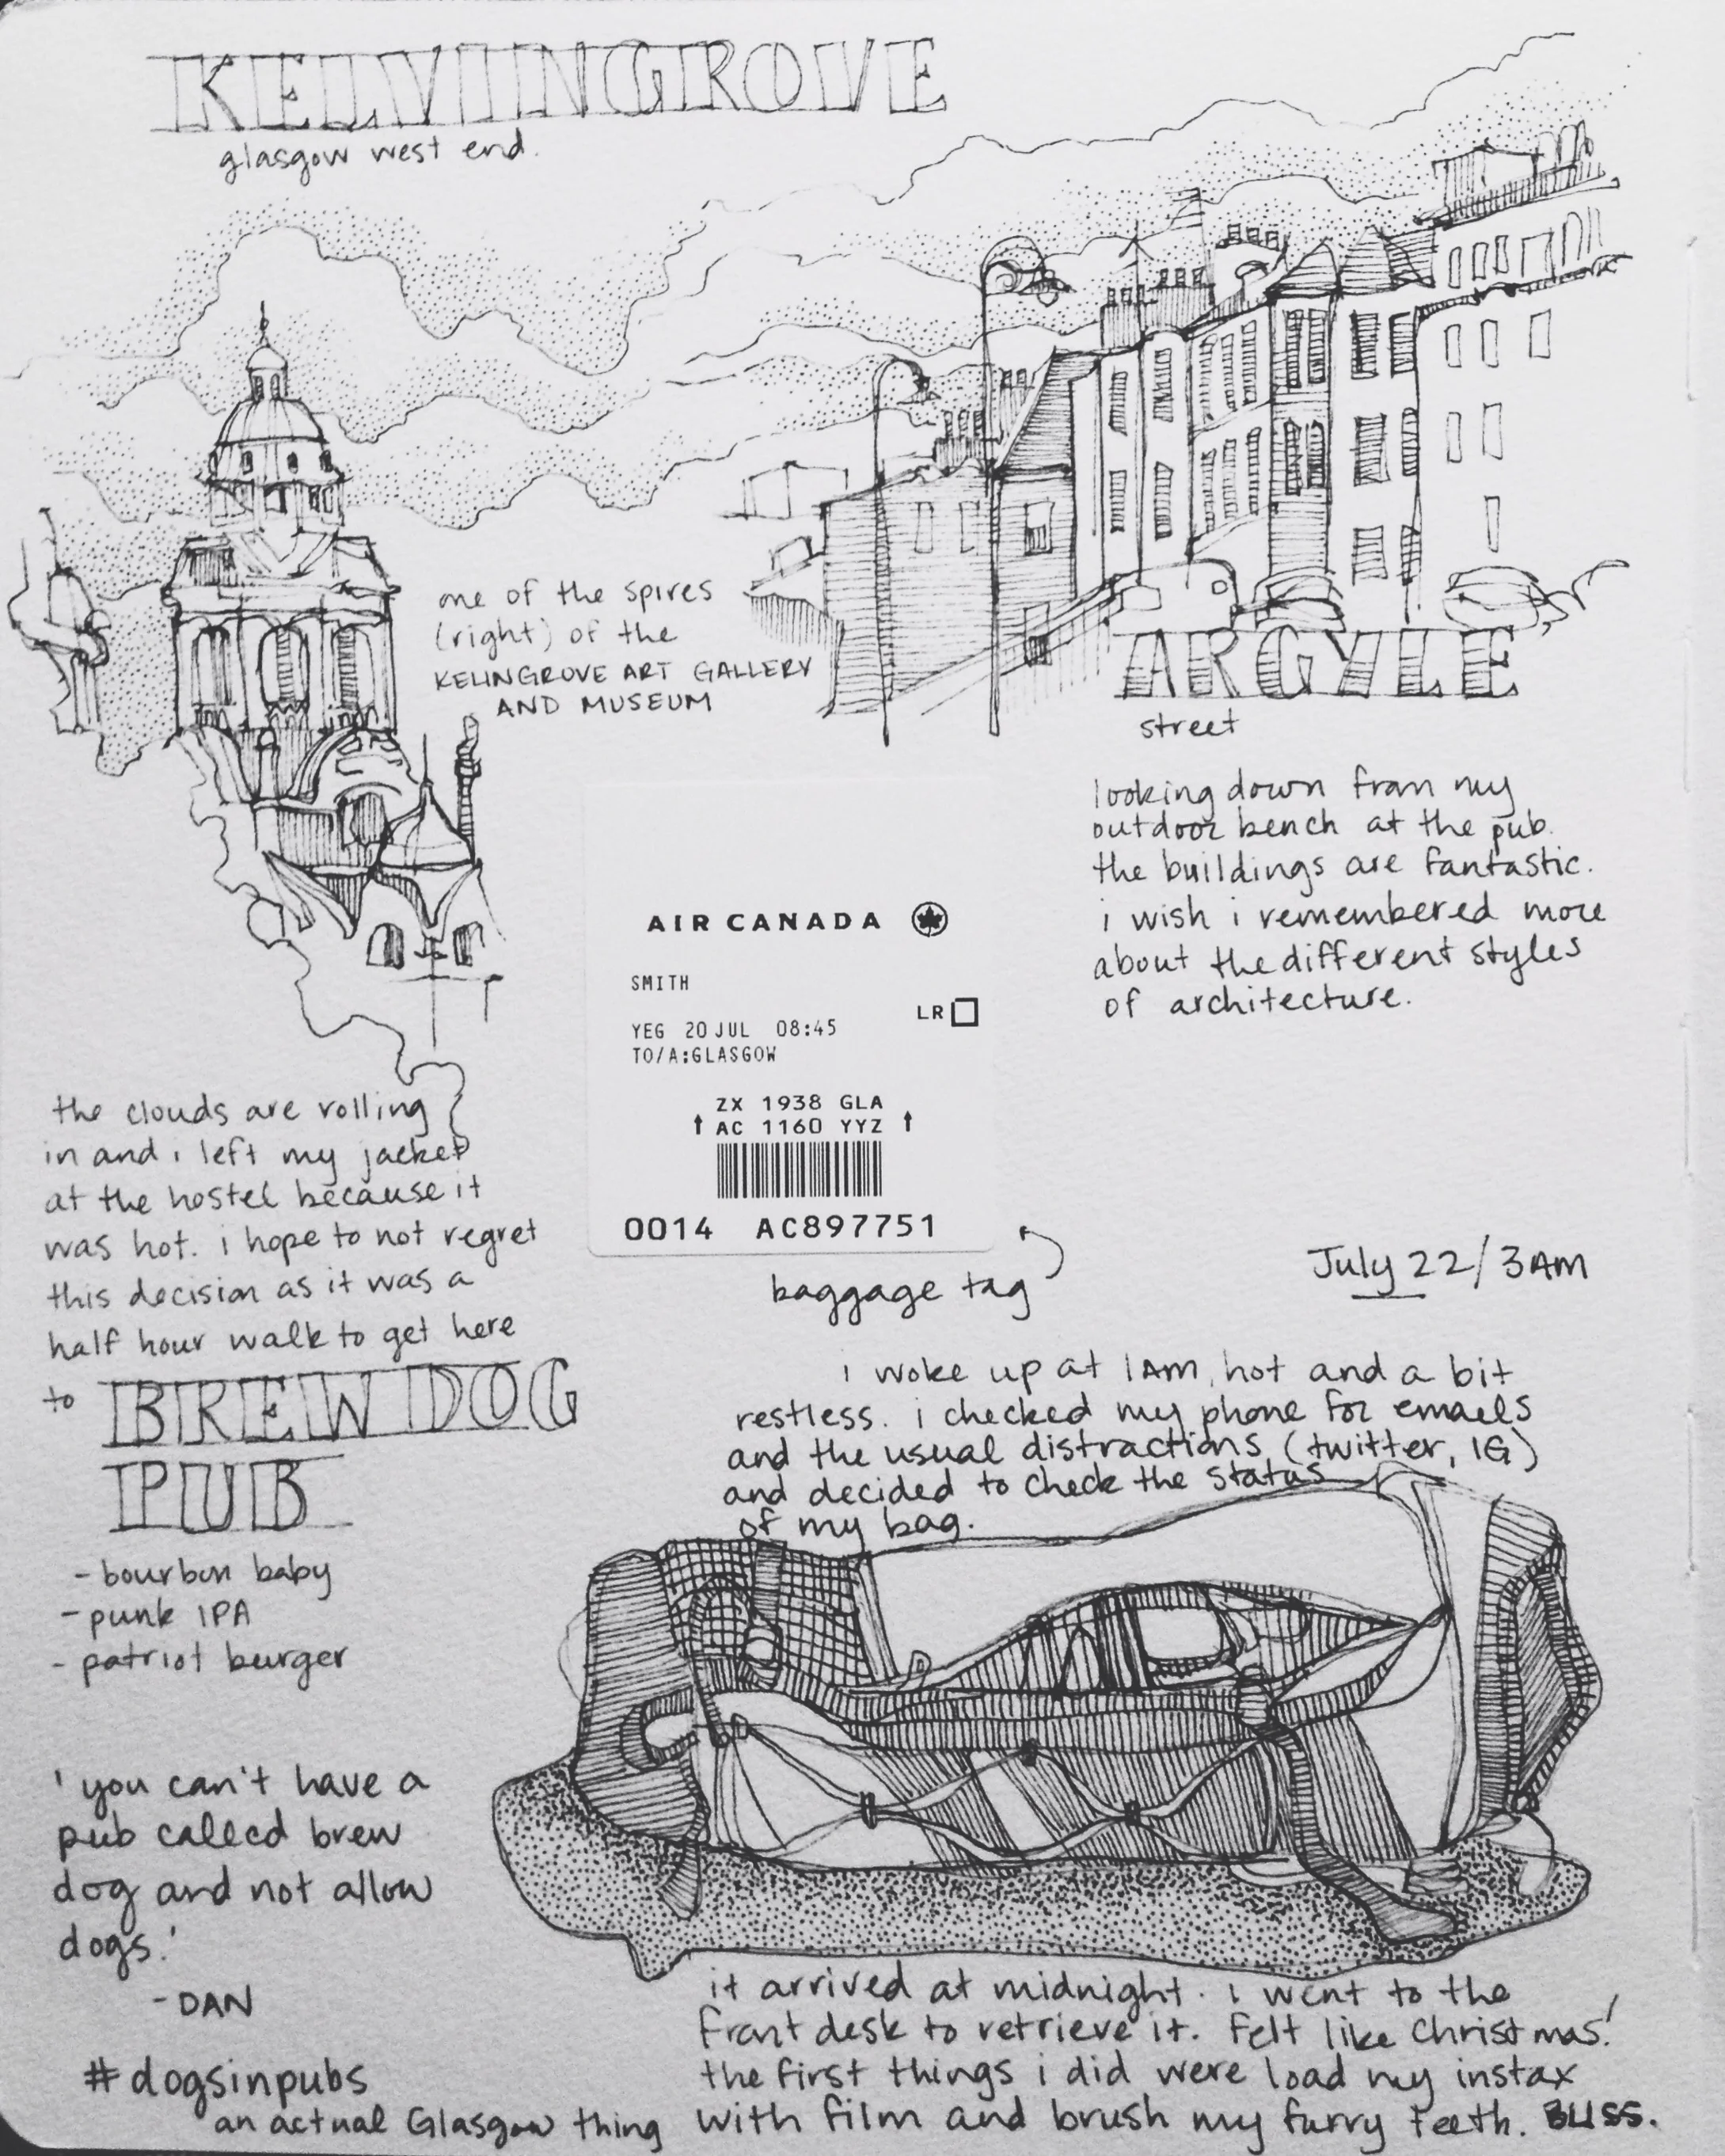 KELVINGROVE
glasgow west end.
one of the spires
(right) of the
KELINGROVE ART GALLERY
AND MUSEUM
ARGYLE
street
looking down from my
outdoor bench at the pub.
the buildings are fantastic.
i wish i remembered more
about the different styles
of architecture.
AIR CANADA
SMITH
LR
YEG 20 JUL 08:45
TO/A:GLASGOW
ZX 1938 GLA
↑ AC 1160 YYZ ↑
0014 AC897751
baggage tag
the clouds are rolling
in and i left my jacket
at the hostel because it
was hot. i hope to not regret
this decision as it was a
half hour walk to get here
to BREWDOG
PUB
- bourbon baby
- punk IPA
- patriot burger
'you can't have a
pub called brew
dog and not allow
dogs.'
- DAN
#dogsinpubs
an actual Glasgow thing
July 22/3AM
i woke up at 1AM, hot and a bit
restless. i checked my phone for emails
and the usual distractions (twitter, IG)
and decided to check the status
of my bag.
it arrived at midnight. i went to the
front desk to retrieve it. Felt like Christmas!
the first things i did were load my instax
with film and brush my furry teeth. BLISS.